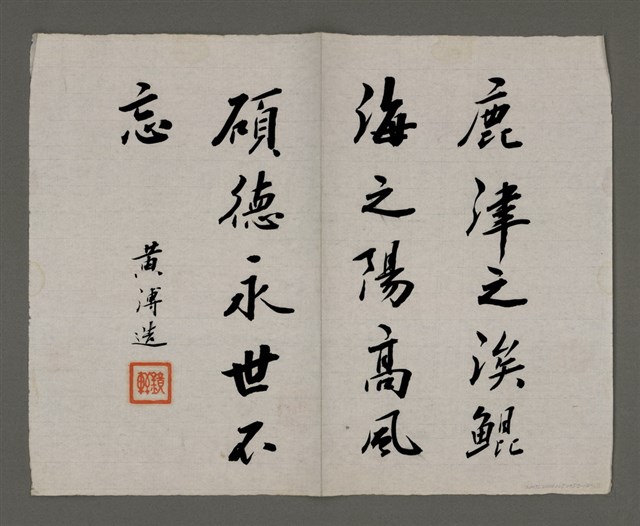 鹿津之涘鯤
海之陽高風
碩德永世不
忘
黃溥造
鏡軒